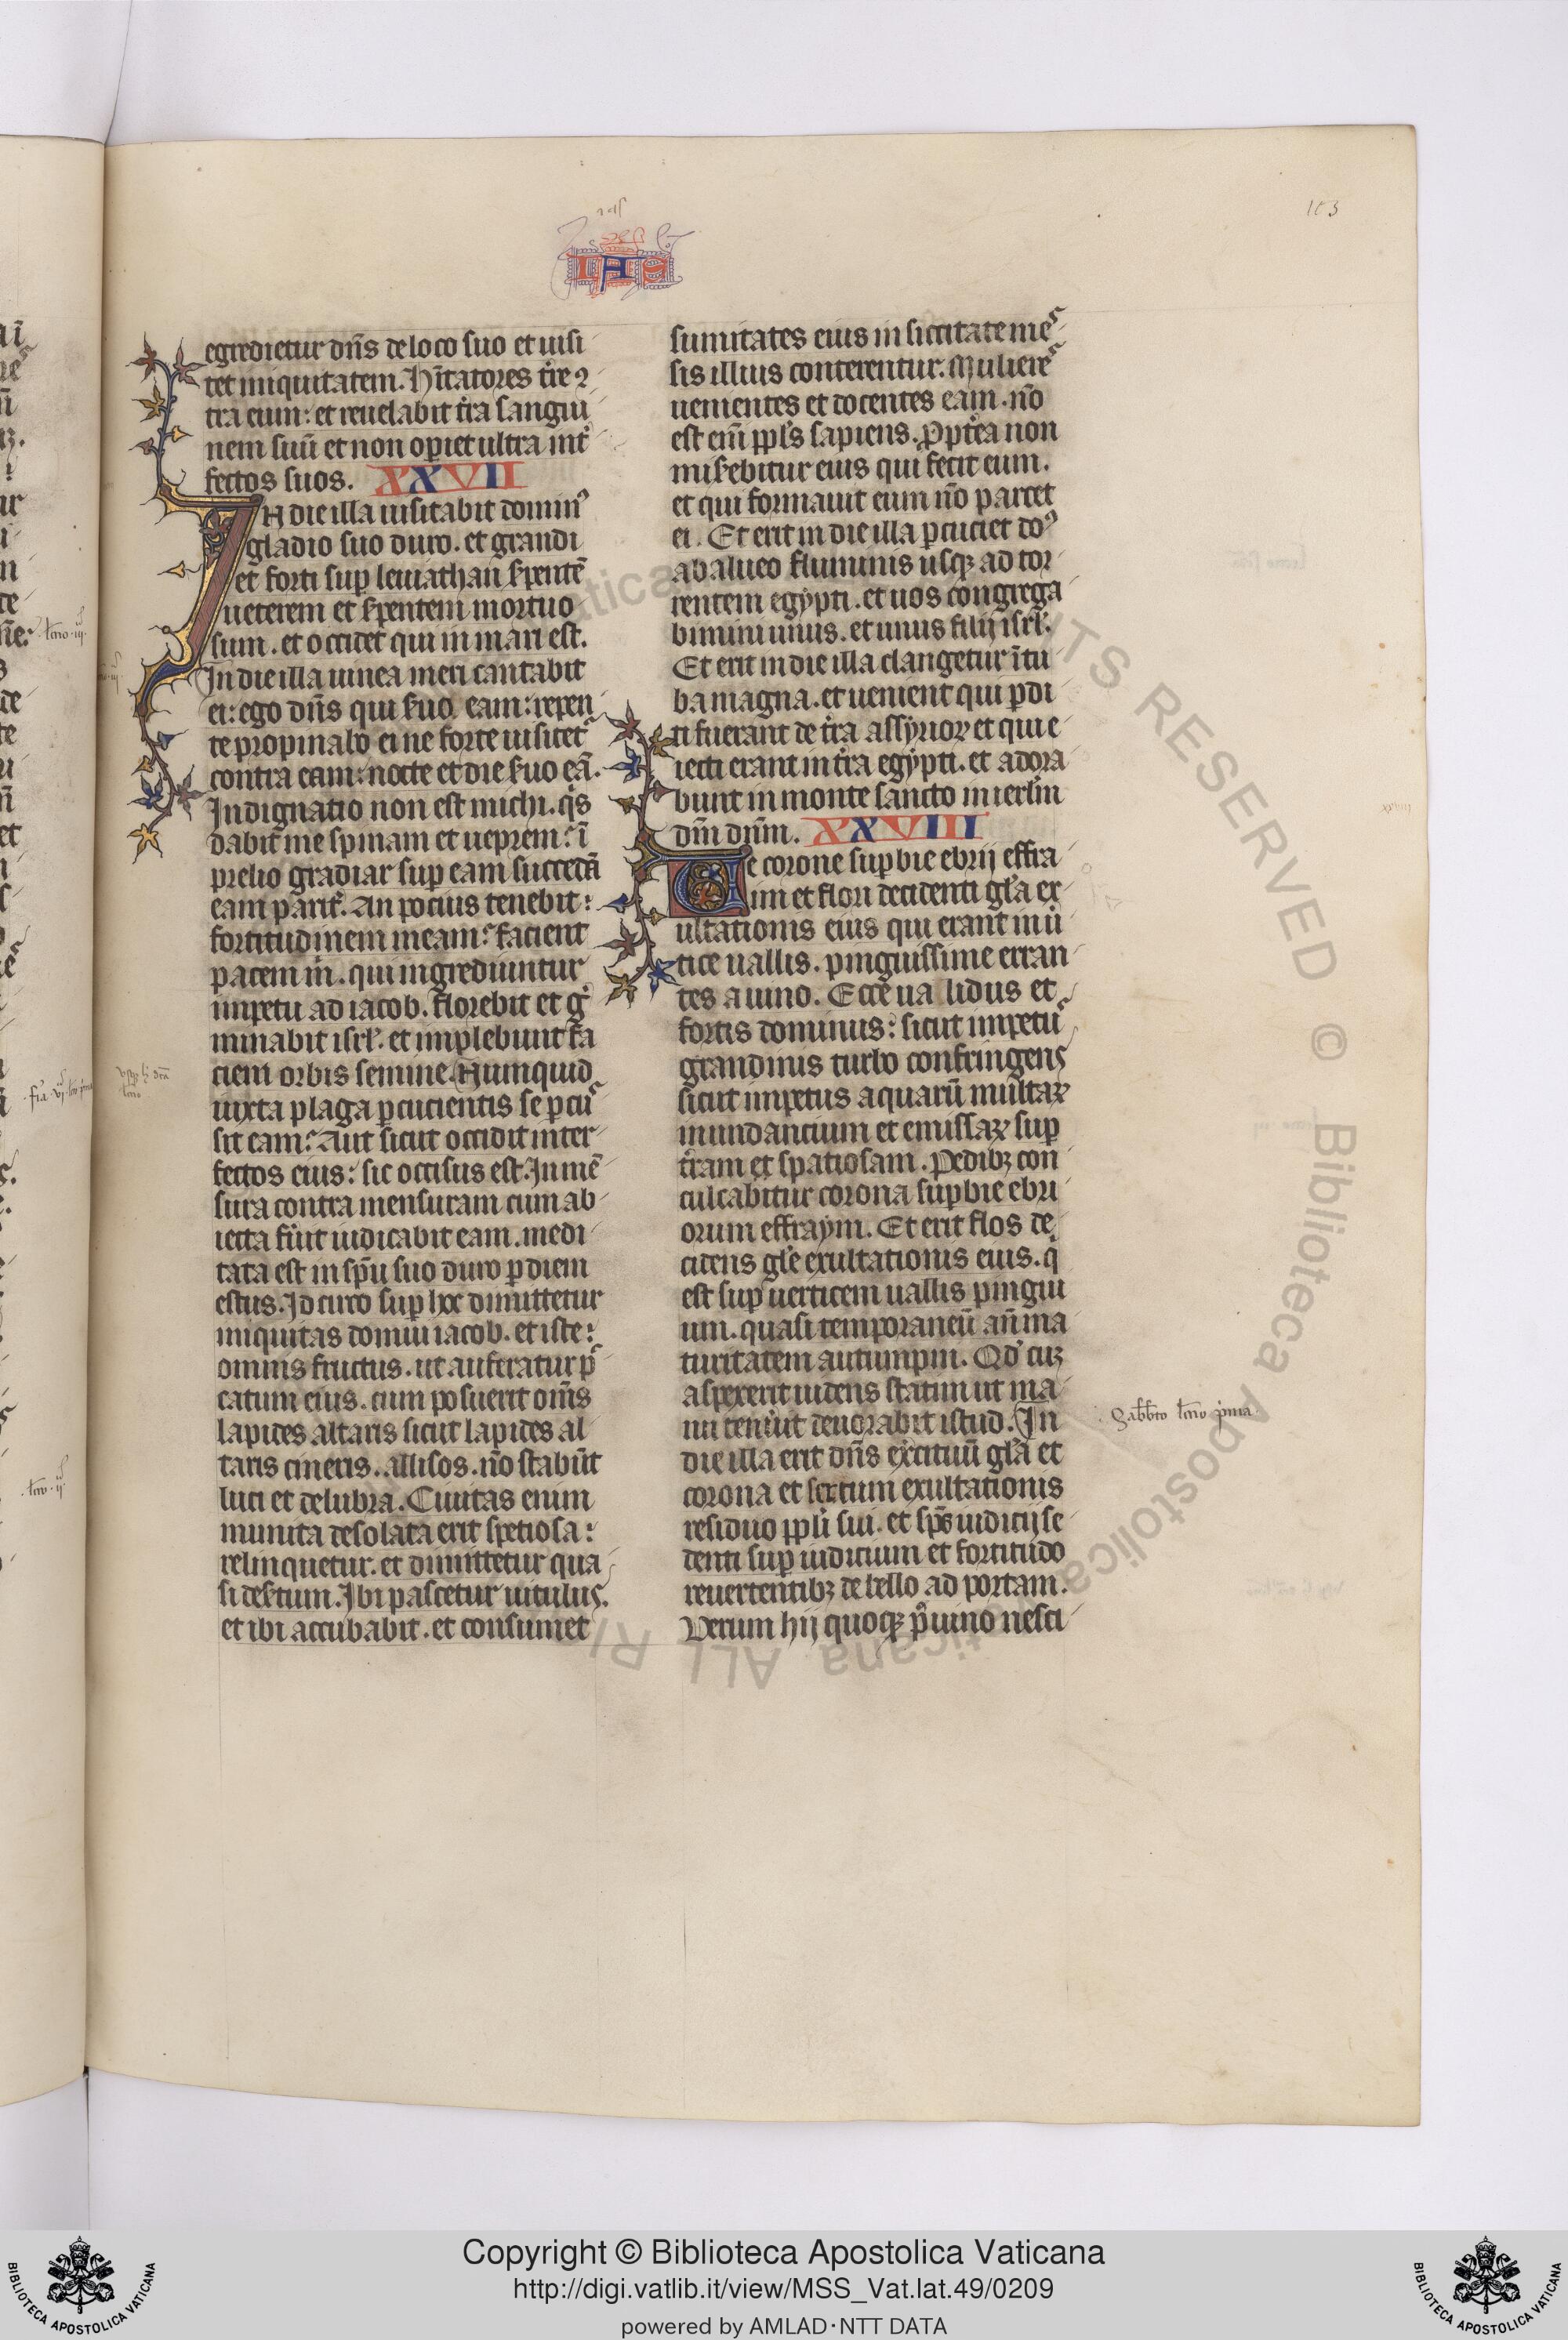 103
IAS
egredietur dn̄s de loco suo et uisi
tet iniquitatem. Hītatores tͥre ꝯ
tra eum: et reuelabit tͥra sangui
nem suū et non oꝑiet ultra int͛
fectos suos. XXVII
IN die illa uisitabit dominꝰ
gladio suo duro. et grandi
et forti suꝑ leuiathan ẜpentē
ueterem et ẜpentem mortuo
sum. et occidet qui in mari est.
In die illa uinea meri cantabit
ei: ego dn̄s qui ẜuo eam: repen
te propinabo ei ne forte uisitet᷒
contra eam: nocte et die ẜuo eā.
Indignatio non est michi. qͥs
dabit me spinam et ueprem: ī
prelio gradiar suꝑ eam succedā
eam parit͛. An pocius tenebit:
fortitudinem meam: faciet
pacem m̄. qui ingrediuntur
impetu ad iacob. florebit et g͛
minabit isrl̓. et implebunt fa
ciem orbis semine. Numquid
iuxta plaga ꝑcucientis se ꝑcu᷒
sit eam: Aut sicut occidit inter
fectos eius: sic occisus est. In mē
sura contra mensuram cum ab
iecta fu̓it iudicabit eam. medi
tata est in sp̄u suo duro ꝑ diem
estus. Idcirco suꝑ hoc dimittetur
iniquitas domui iacob. et iste:
omnis fructus. ut auferatur p᷒
catum eius. cum posuerit om̄s
lapides altaris sicut lapides al
taris cineris. allisos. nō stabūt
luci et delubra. Ciuitas enim
munita desolata erit spetiosa:
relinquetur. et dimittetur qua
si deẜtum. Ibi pascetur uitulus.
et ibi accubabit. et consumet
sumitates eius in siccitate me᷒
sis illius conterentur. Muliere᷒
uenientes et docentes eam. nō
est em̄ ppl̓s sapiens. Propt̓ea non
miẜebitur eius qui fecit eum.
et qui formauit eum nō parcet
ei. Et erit in die illa ꝑcuciet doꝰ
ab alueo fluminis usqꝫ ad tor
rentem egypti. et uos congrega
bimini unus. et unus filij isrl̓.
Et erit in die illa clangetur ī tu
ba magna. et uenient qui ꝑdi
ti fuerant de tͥra assyrioꝝ et qui e
iecti erant in tͥra egypti. et adora
bunt in monte sancto in ierl̓m
dm̄ dnm̄. XXVIII
Ue corone suꝑbie ebrij effra
im et flori decidenti gl̓a ex
ultationis eius qui erant in u͛
tice uallis. pinguissime erran
tes a uino. Ecce ua lidus et
fortis dominus: sicut impetu᷒
grandinis turbo confringens
sicut impetus aquarū multaꝝ
inundancium et emissaꝝ suꝑ
tͥram et spatiosam. Pedibꝫ con
culcabitur corona suꝑbie ebri
orum effraym. Et erit flos de
cidens gl̓e exultationis eius. qͥ
est suꝑ uerticem uallis pingui
um. quasi temporaneū an̄ ma
turitatem autumpni. Qd̓ cuꝫ
aspexerit uidens statim ut ma
nu tenu̓it deuorabit istud. In
die illa erit dn̄s ex̓cituū gl̓a et
corona et sertum exultationis
residuo ppl̓i sui. et sp̄s iudicij se
denti suꝑ iudicium et fortitudo
reuertentibꝫ de bello ad portam.
Verum hij quoqꝫ p̄ uino nesci
Sabb̓to lc̄io p̓ma
Copyright © Biblioteca Apostolica Vaticana
http://digi.vatlib.it/view/MSS_Vat.lat.49/0209
powered by AMLAD·NTT DATA
BIBLIOTECA APOSTOLICA VATICANA
BIBLIOTECA APOSTOLICA VATICANA